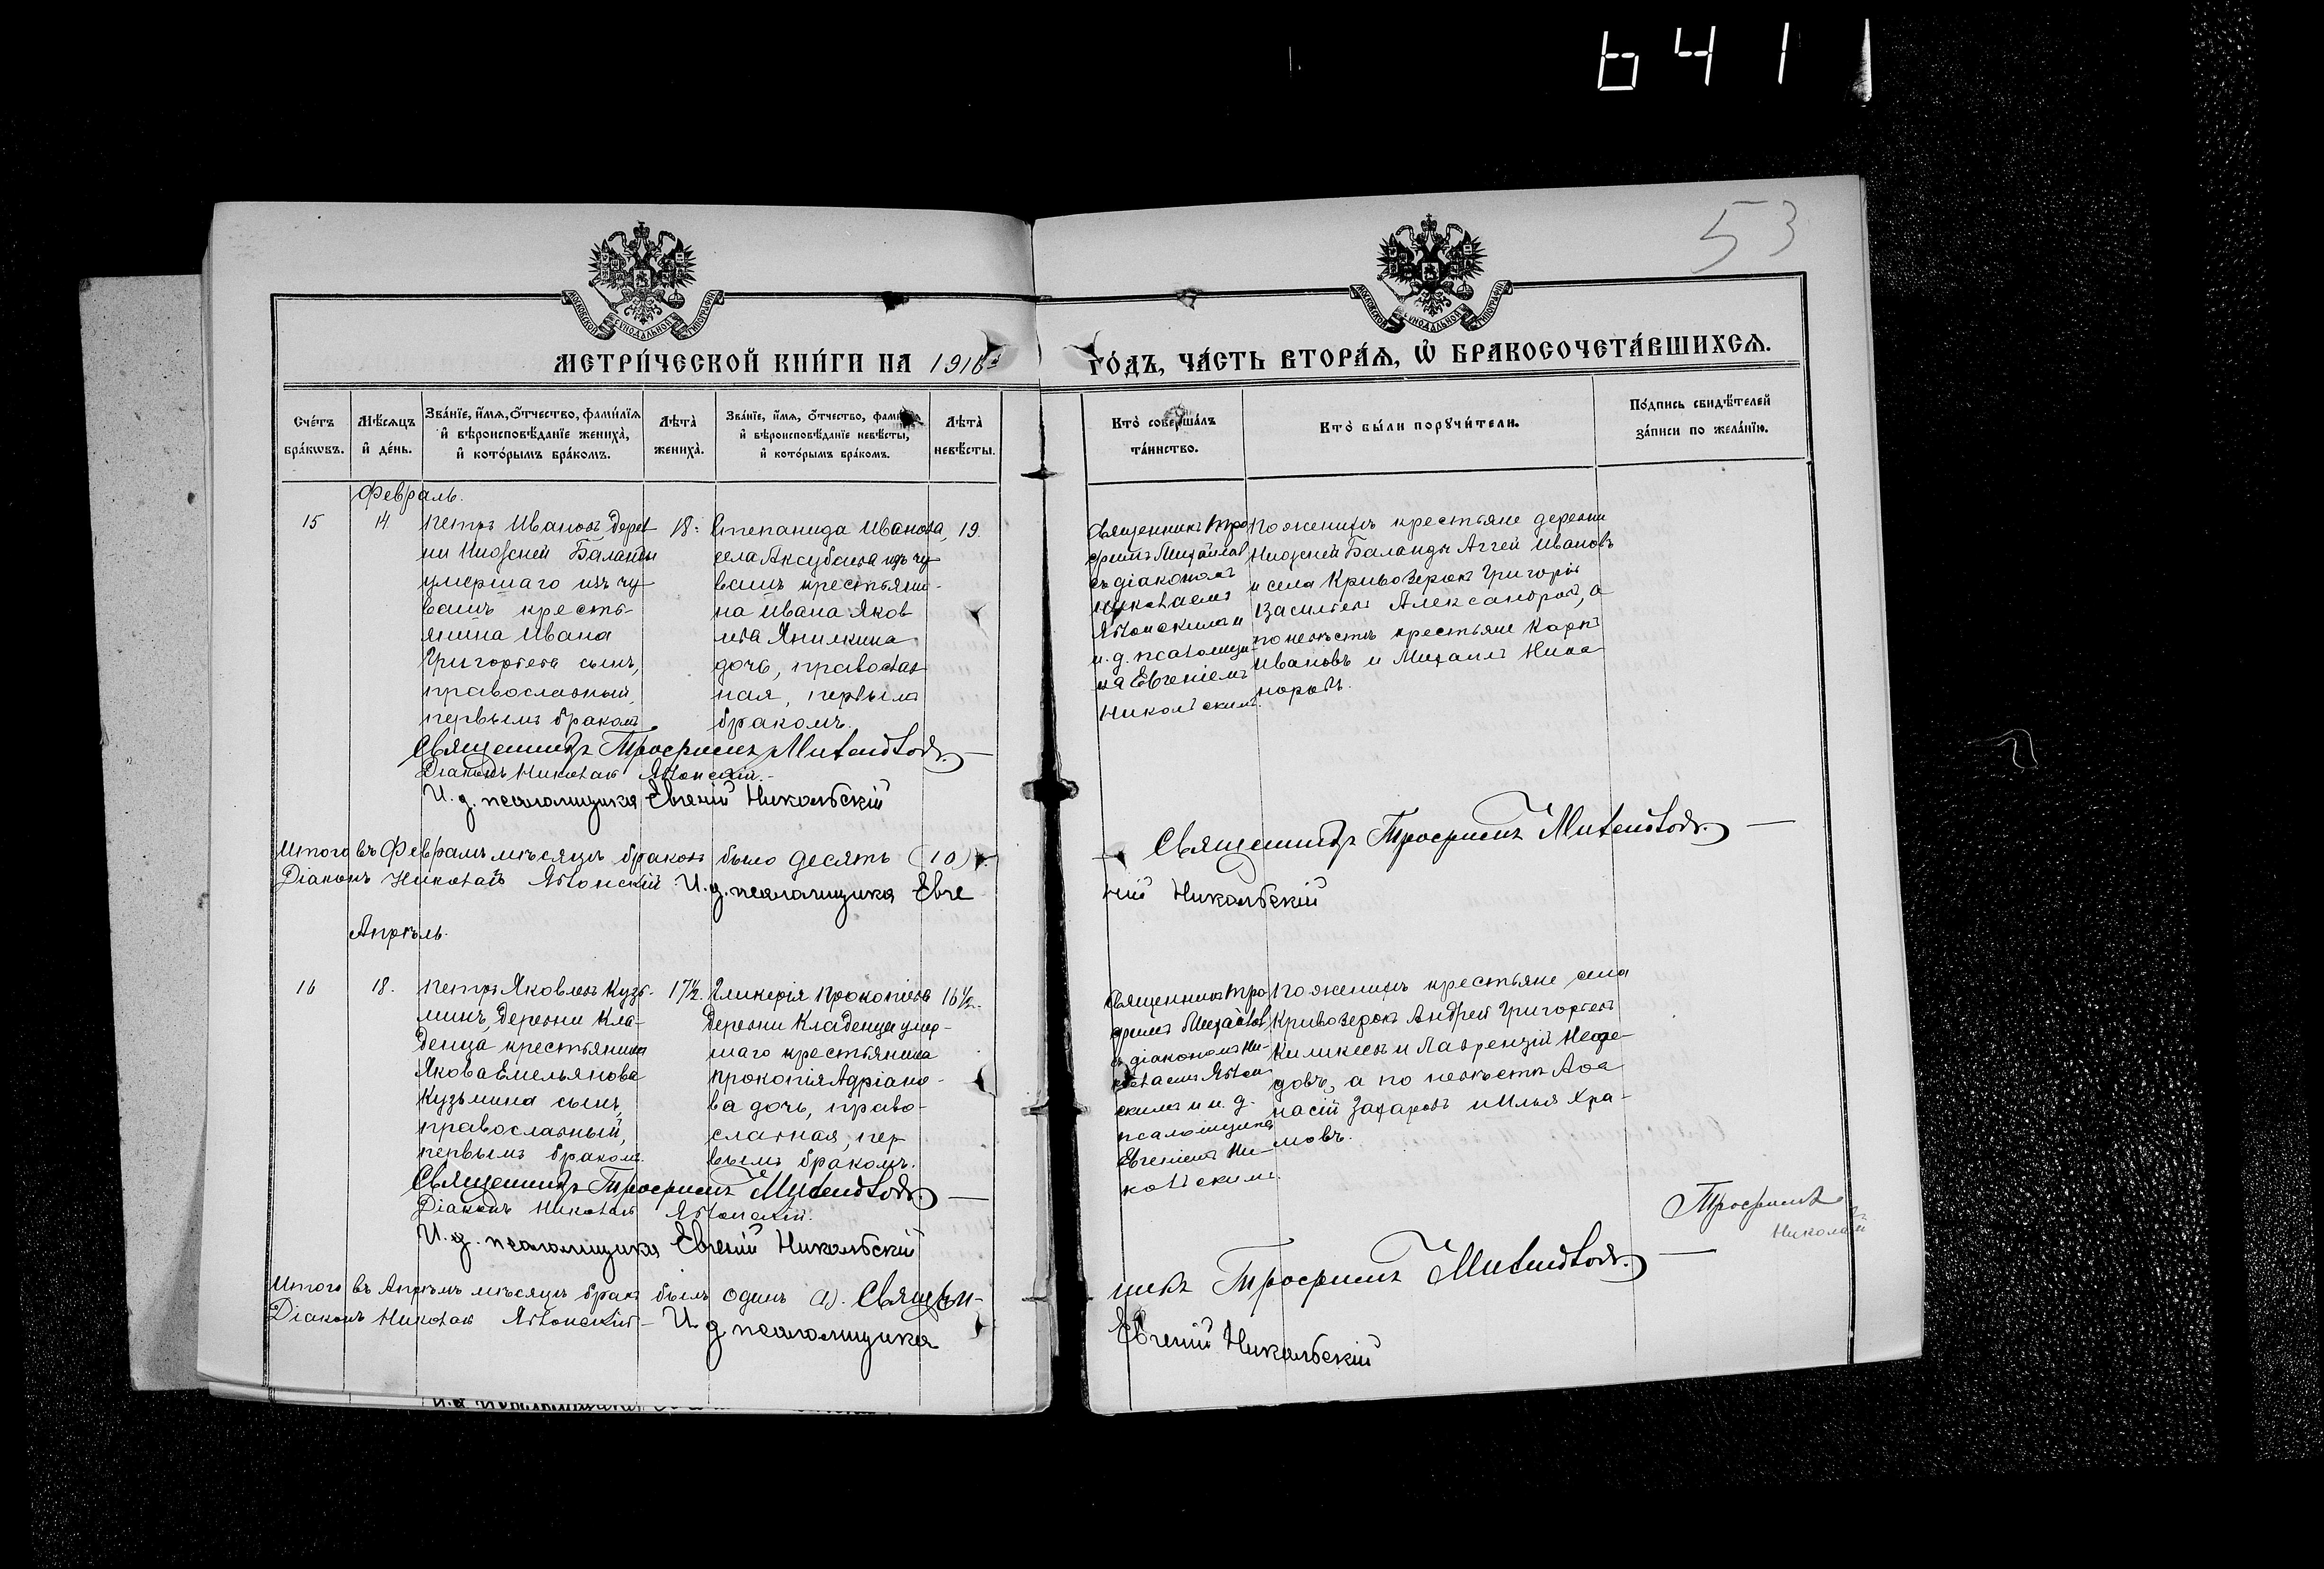 641
53
МОСКОВСКОЙ СѴНОДАЛЬНОЙ ТИПОГРАФІИ
МОСКОВСКОЙ СѴНОДАЛЬНОЙ ТИПОГРАФІИ
МЕТРИ́ЧЕСКОЙ КНИ́ГИ НА 1916 й
ГО́ДЪ, ЧА́СТЬ ВТОРА́Ѧ, Ѡ҆ БРАКОСОЧЕТА́ВШИХСѦ.
Сче́тъ бра́кѡвъ.
Мѣ́сѧцъ и҆ де́нь.
Зва́нїе, и҆́мѧ, ѻ҆́тчество, фами́лїѧ и҆ вѣроисповѣ́данїе жениха̀, и҆ кото́рымъ бра́комъ.
Лѣта̀ жениха̀.
Зва́нїе, и҆́мѧ, ѻ҆́тчество, фами́лїѧ и҆ вѣроисповѣ́данїе невѣ́сты, и҆ кото́рымъ бра́комъ.
Лѣта̀ невѣ́сты.
Кто̀ соверша́лъ та́инство.
Кто̀ бы́ли порꙋчи́тели.
По́дпись свидѣ́телей за́писи по жела́нїю.
Февраль.
15
14.
Петръ Ивановъ дерев
ни Нижней Баланды
умершаго изъ чу
вашъ кресть-
янина Ивана
Григорьева сынъ,
православный,
первымъ бракомъ
18.
Степанида Иванова,
села Аксубаева изъ чу
вашъ крестьяни-
на Ивана Яков
лева Яшикина
дочь, православ
ная, первымъ
бракомъ.
19.
Священникъ Тро
фимъ Михайлов
съ діакономъ
Николаемъ
Яблонскимъ и
и. д. псаломщи-
ка Евгеніемъ
Никольскимъ.
По женихѣ крестьяне деревни
Нижней Баланды Аггей Ивановъ
и села Кривозерокъ Григорій
Васильевъ Александровъ, а
по невѣстѣ крестьяне Карпъ
Ивановъ и Михаилъ Ника
норовъ.
Священникъ Трофимъ Михайловъ.
Діаконъ Николай Яблонскій.
И. д. псаломщика Евгеній Никольскій
Итого въ Февралѣ мѣсяцѣ браковъ было десять (10).
Священникъ Трофимъ Михайловъ.
Діаконъ Николай Яблонскій. И. д. псаломщика Евге
ній Никольскій
Апрѣль.
16
18.
Петръ Яковлевъ Кузь-
минъ, деревни Кла-
денца крестьянина
Якова Емельянова
Кузьмина сынъ,
православный,
первымъ бракомъ.
17½.
Гликерія Прокопіева
деревни Кладенца умер-
шаго крестьянина
Прокопія Адріано-
ва дочь, право-
славная, пер
вымъ бракомъ.
16½.
Священникъ Тро
фимъ Михайлов
съ діакономъ Ни-
колаемъ Яблон
скимъ и и. д.
псаломщика
Евгеніемъ Ни-
кольскимъ.
По женихѣ крестьяне села
Кривозерокъ Андрей Григорьевъ
и Лаврентій
довъ, а по невѣстѣ Аѳа
насій Захаровъ и Илья Хра-
мовъ.
Священникъ Трофимъ Михайловъ.
Діаконъ Николай Яблонскій.
И. д. псаломщика Евгеній Никольскій
Трофимъ
Николай
Итого въ Апрѣлѣ мѣсяцѣ бракъ былъ одинъ (1). Священ-
никъ Трофимъ Михайловъ.
Діаконъ Николай Яблонскій. И. д. псаломщика
Евгеній Никольскій